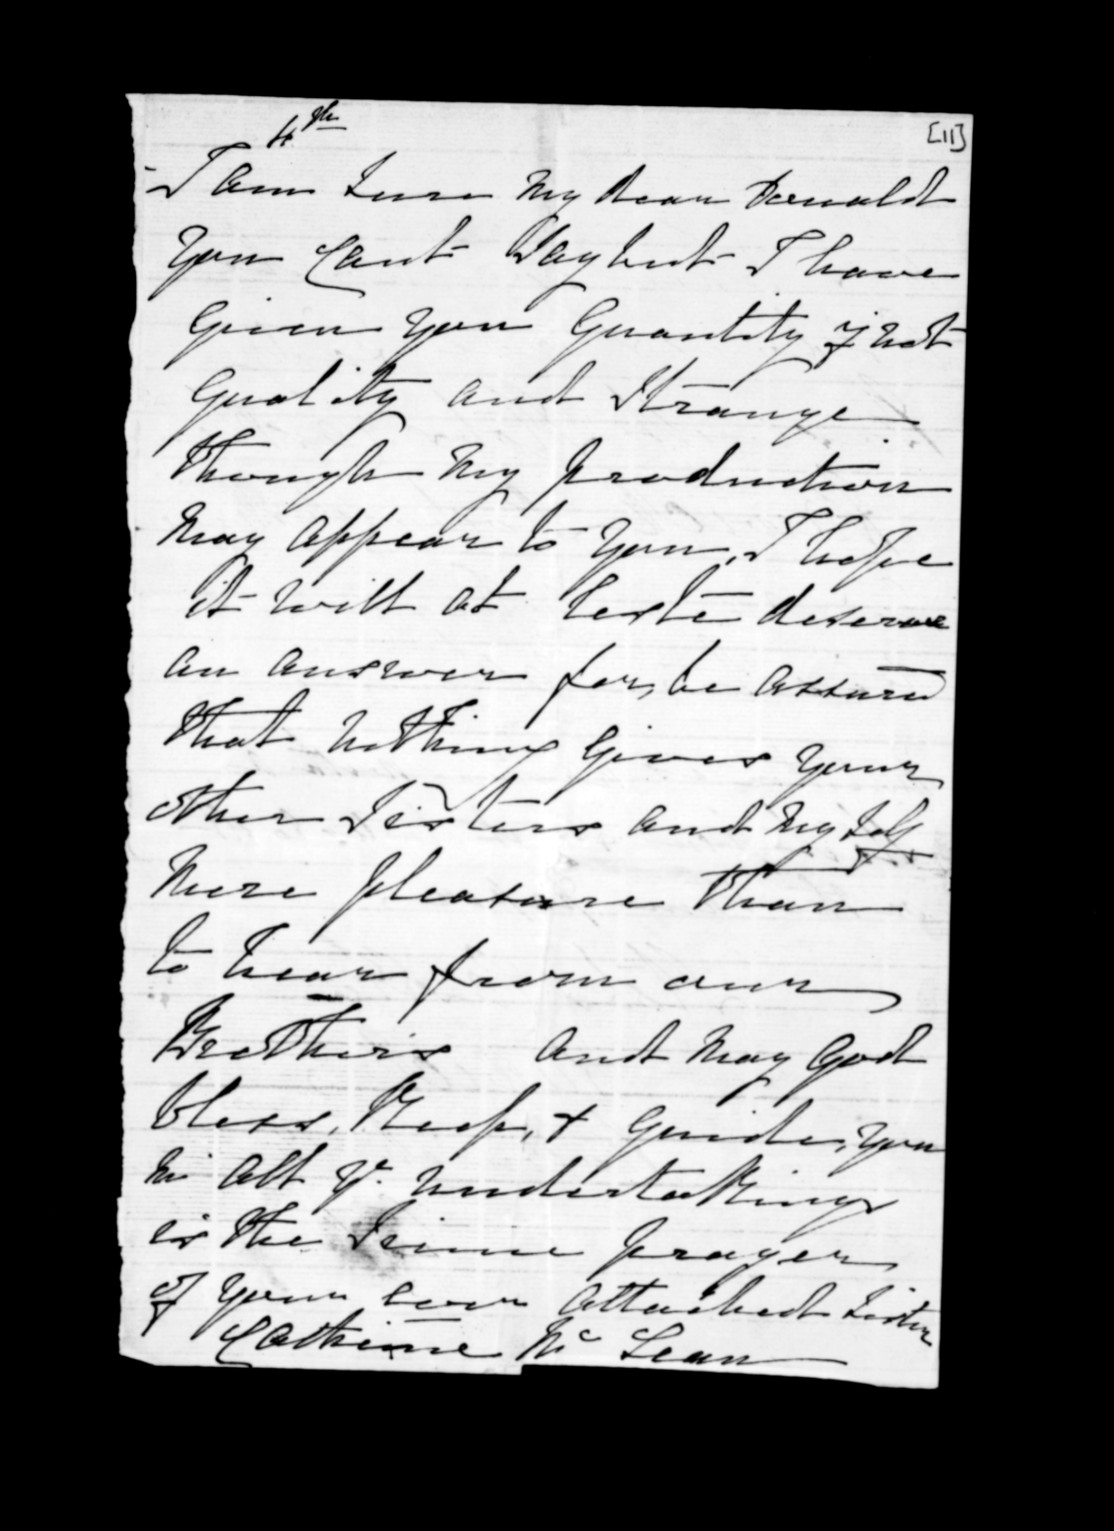 [11]
4th
I am sure my dear Donald
you cant say but I have
given you quantity if not
quality and strange
though my production
may appear to you, I hope
it will at leste deserve
an answer for, be assured
that nothing gives your
other sisters and my self
more pleasure than
to hear from our
Brothers and may God
bless, Keep, & guide, you
in all yr. undertakings
is the prayer
of your ever attached sister
Catherine McLean